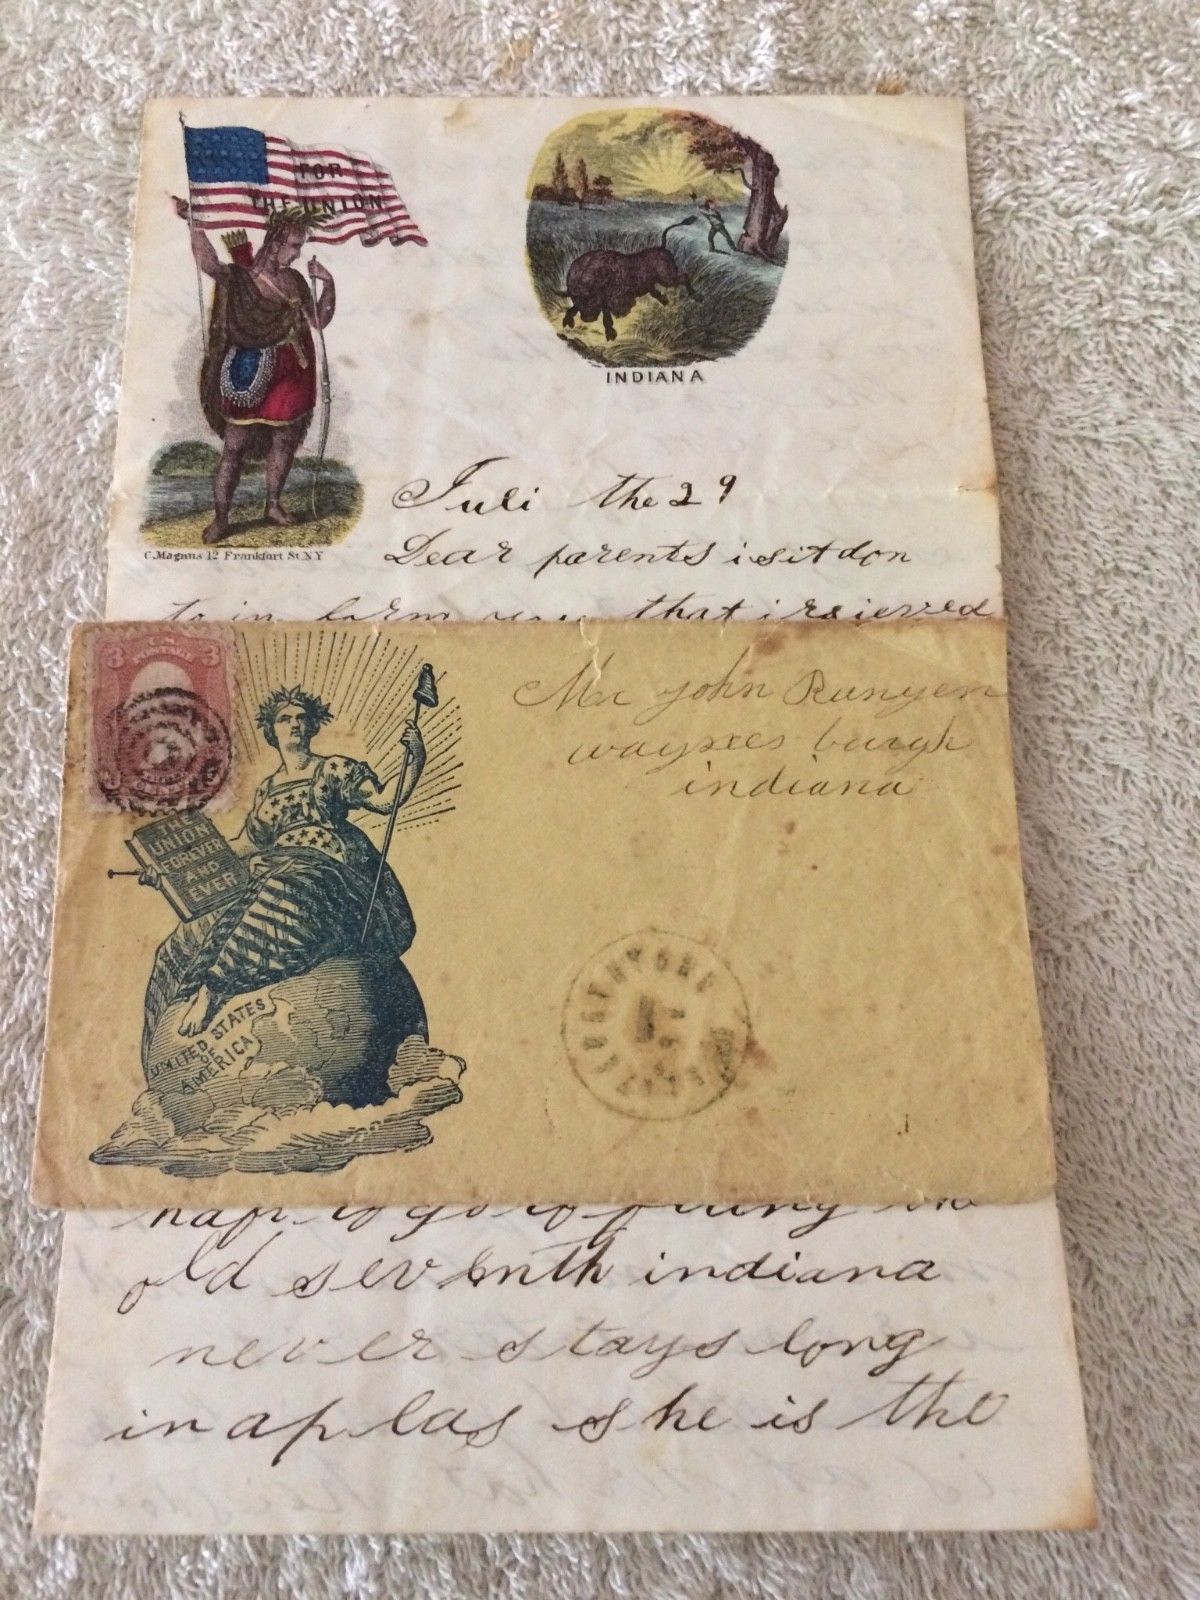 FOR
THE UNION
INDIANA
C. Magnus 12 Frankfort St. NY
Juli the 29
Dear parents i sit don
to in form you that i reseieved
3 U.S. 3
POSTAGE
Mr John Runyen
burgh
indiana
THE
UNION
FOREVER
AND
EVER
UNITED STATES
OF
AMERICA
old seventh indiana
never stays long
in a plas she is the